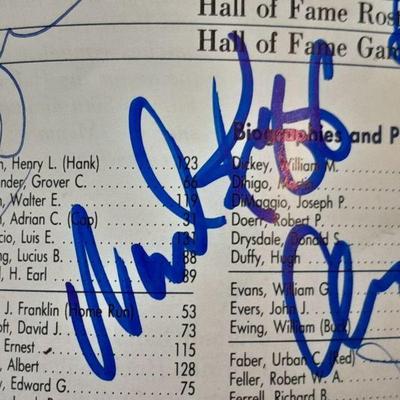 Hall of Fame
Hall of Fame
Biographies and
Henry L. (Hank) 123
Grover C. 66
Walter E. 119
Adrian C. (Cap) 31
Luis E.
Lucius B. 88
H. Earl 89
J. Franklin (Home Run) 53
David J. 73
Ernest 115
Albert 128
Edward G. 75
Dickey, William M.
Dihigo, Martin
DiMaggio, Joseph P.
Doerr, Robert P.
Drysdale, Donald S.
Duffy, Hugh
Evans, William G.
Evers, John J.
Ewing, William (Buck)
Faber, Urban C. (Red)
Feller, Robert W. A.
Ferrell, Richard B.